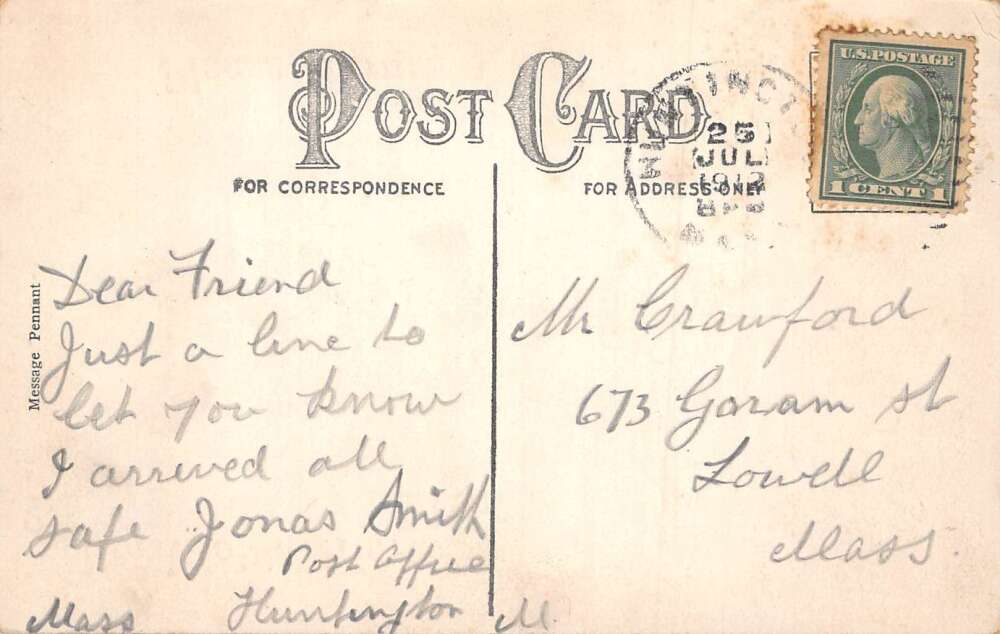 POST CARD
FOR CORRESPONDENCE
FOR ADDRESS ONLY
25
JUL
1912
U.S. POSTAGE
1 CENT 1
Message Pennant
Dear Friend
Just a line to
let you know
I arrived all
safe Jonas Smith
Post Office
Mass Huntington M
Mr Crawford
673 Goram st
Lowell
Mass.